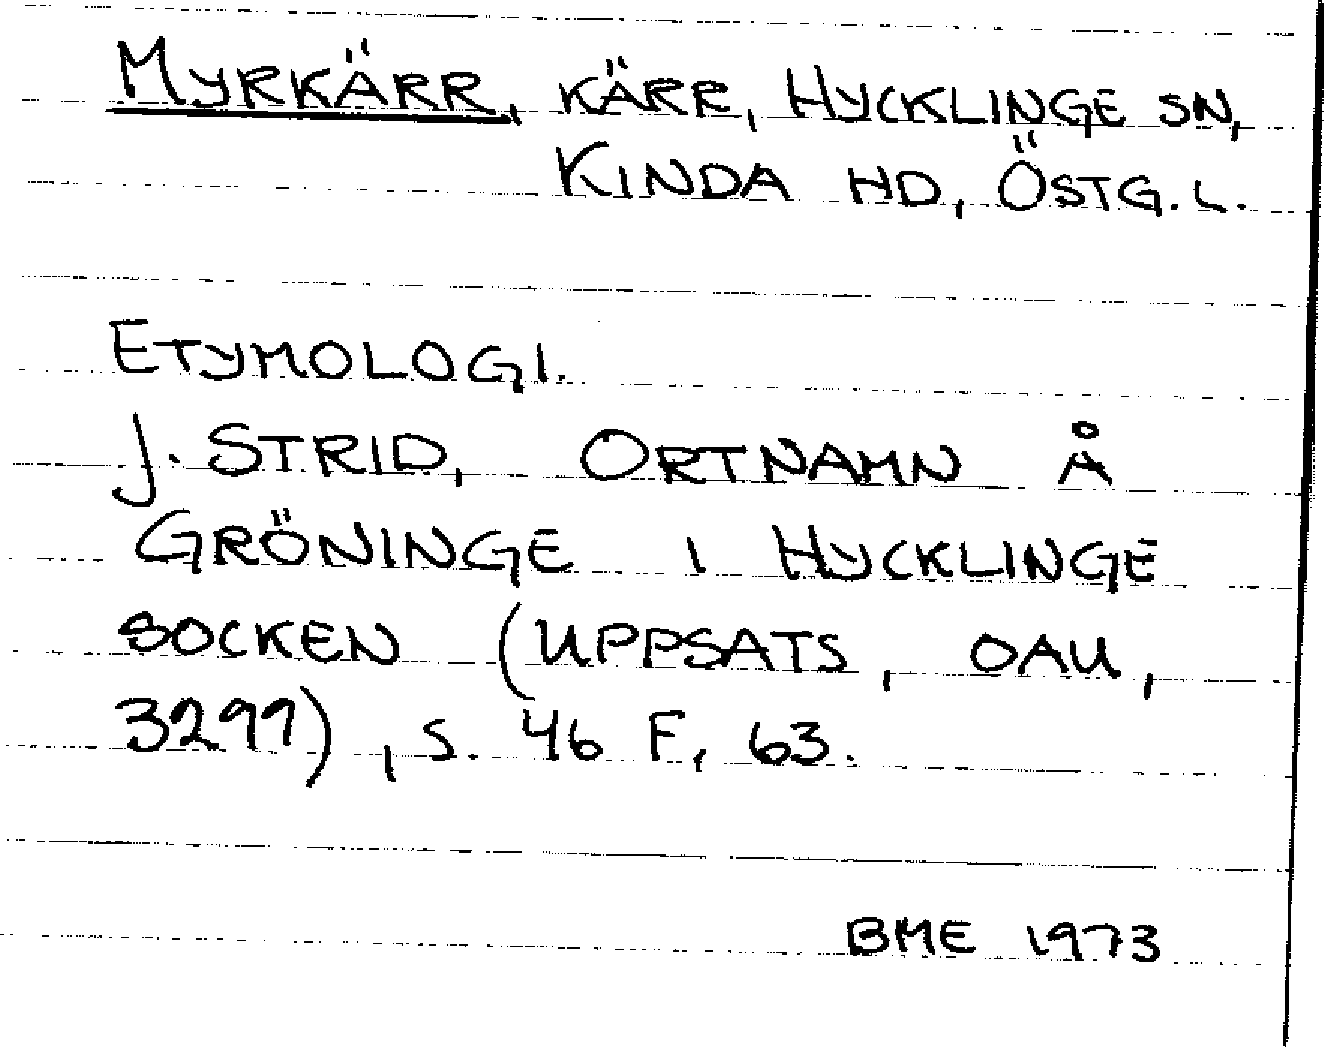 MYRKÄRR, KÄRR, HYCKLINGE SN,
KINDA HD, ÖSTG. L.
ETYMOLOGI.
J. STRID, ORTNAMN Å
GRÖNINGE I HYCKLINGE
SOCKEN (UPPSATS, OAU,
3299), S. 46 F, 63.
BME 1973